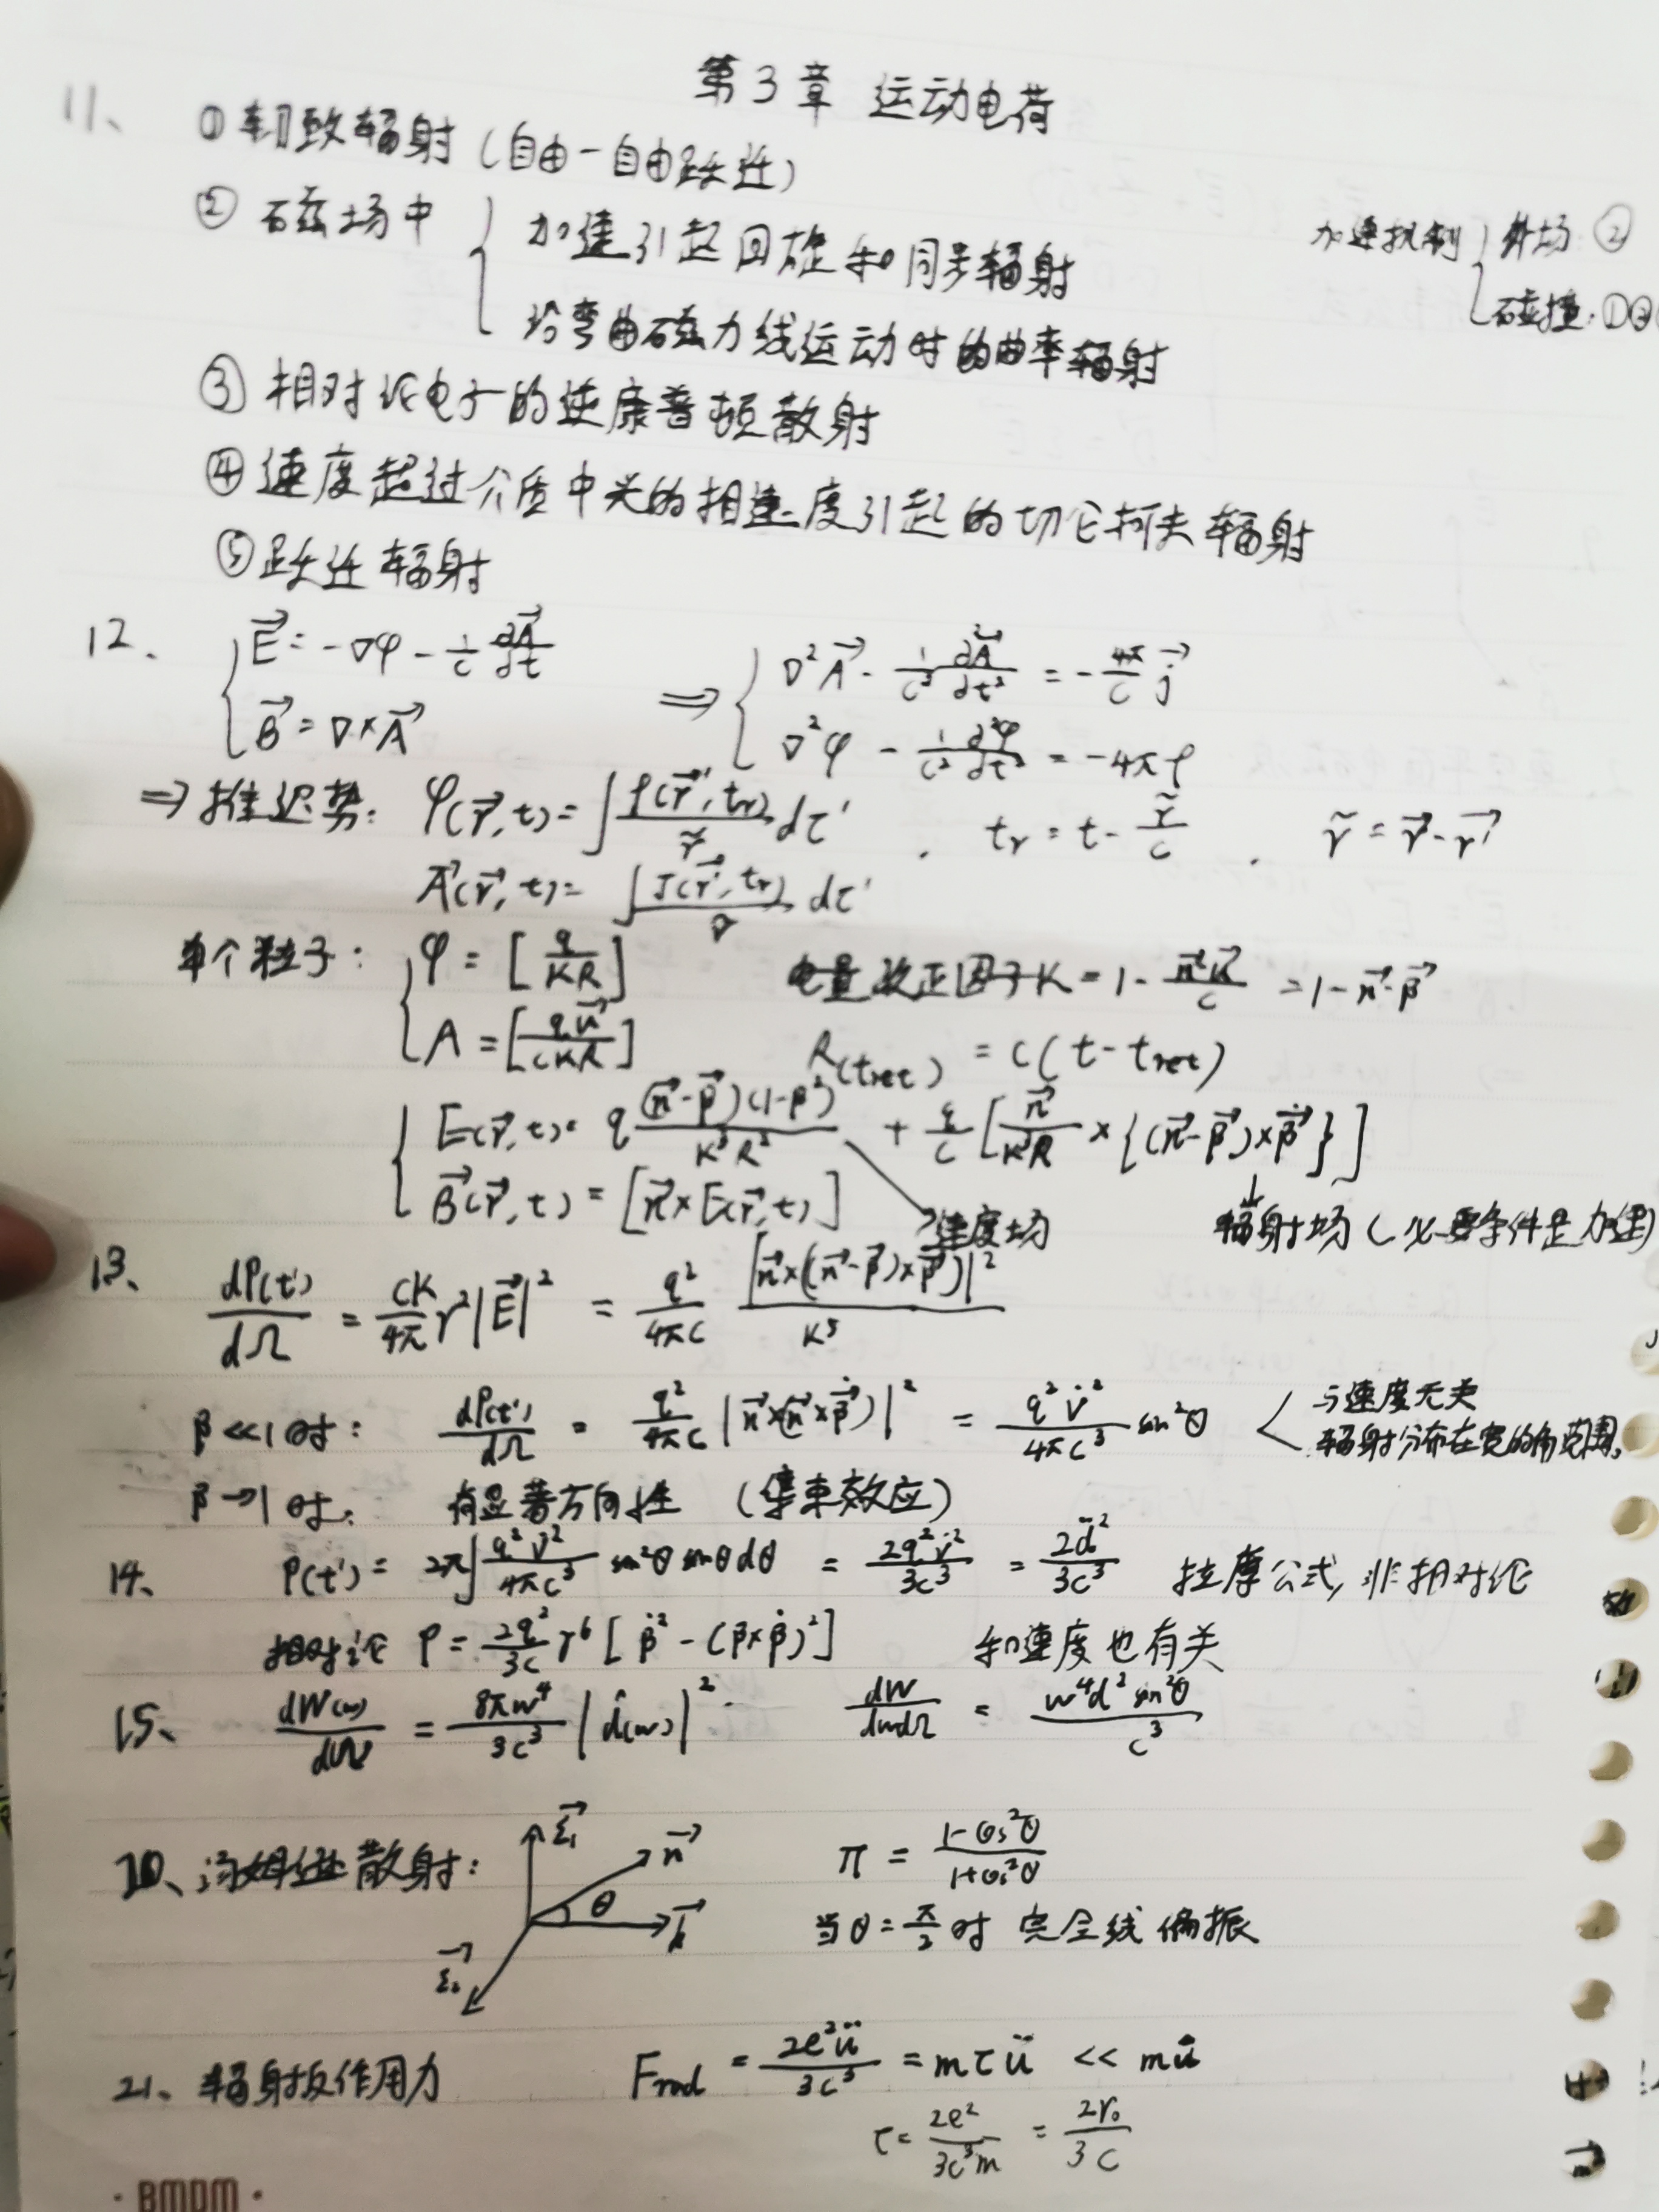 第3章 运动电荷
11、 ① 轫致辐射（自由-自由跃迁）
② 磁场中 { 加速引起回旋和同步辐射
沿弯曲磁力线运动时的曲率辐射
加速机制 { 外场: ②
碰撞: ①③
③ 相对论电子的逆康普顿散射
④ 速度超过介质中光的相速度引起的切仑柯夫辐射
⑤ 跃迁辐射
12、 { \vec{E} = -∇φ - \frac{1}{c}\frac{∂\vec{A}}{∂t}
\vec{B} = ∇×\vec{A}
⇒ { ∇²\vec{A} - \frac{1}{c²}\frac{∂²\vec{A}}{∂t²} = -\frac{4π}{c}\vec{j}
∇²φ - \frac{1}{c²}\frac{∂²φ}{∂t²} = -4πρ
⇒ 推迟势: φ(\vec{r},t) = ∫\frac{ρ(\vec{r}',t_r)}{\tilde{r}}dτ' , t_r = t - \frac{\tilde{r}}{c} , \tilde{r} = \vec{r}-\vec{r}'
\vec{A}(\vec{r},t) = ∫\frac{J(\vec{r}',t_r)}{\tilde{r}}dτ'
单个粒子: { φ = [\frac{q}{KR}] 电量改正因子 K = 1 - \frac{\vec{n}·\vec{u}}{c} = 1-\vec{n}·\vec{β}
A = [\frac{q\vec{u}}{cKR}] R(t_{ret}) = c(t-t_{ret})
{ E(\vec{r},t) = q\frac{(\vec{n}-\vec{β})(1-β²)}{K³R²} + \frac{q}{c}[\frac{\vec{n}}{K³R}×{(\vec{n}-\vec{β})×\dot{\vec{β}}}]
\vec{B}(\vec{r},t) = [\vec{n}×E(\vec{r},t)] 速度场 辐射场（必要条件是加速）
13、 \frac{dP(t')}{dΩ} = \frac{cK}{4π}r²|\vec{E}|² = \frac{q²}{4πc}\frac{|\vec{n}×((\vec{n}-\vec{β})×\dot{\vec{β}})|²}{K⁵}
β≪1时: \frac{dP(t')}{dΩ} = \frac{q²}{4πc}|\vec{n}×(\vec{n}×\dot{\vec{β}})|² = \frac{q²\dot{v}²}{4πc³}sin²θ < 与速度无关
辐射分布在宽的角范围.
β→1时: 有显著方向性 （集束效应）
14、 P(t') = 2π∫\frac{q²\dot{v}²}{4πc³}sin²θ sinθdθ = \frac{2q²\dot{v}²}{3c³} = \frac{2\ddot{d}²}{3c³} 拉摩公式, 非相对论
相对论 P = \frac{2q²}{3c}γ⁶[\dot{β}² - (β×\dot{β})²] 和速度也有关
15、 \frac{dW(ω)}{dω} = \frac{8πω⁴}{3c³}|\hat{d}(ω)|² \frac{dW}{dωdΩ} = \frac{ω⁴d²sin²θ}{c³}
20、汤姆逊散射: \vec{ε_1} \vec{n} θ \vec{k} \vec{ε_2} π = \frac{1-cos²θ}{1+cos²θ}
当θ=\frac{π}{2}时 完全线偏振
21、辐射反作用力 F_{rad} = \frac{2e²\ddot{u}}{3c³} = mτ\ddot{u} ≪ m\dot{u}
τ = \frac{2e²}{3c³m} = \frac{2r_0}{3c}
· BMDM ·